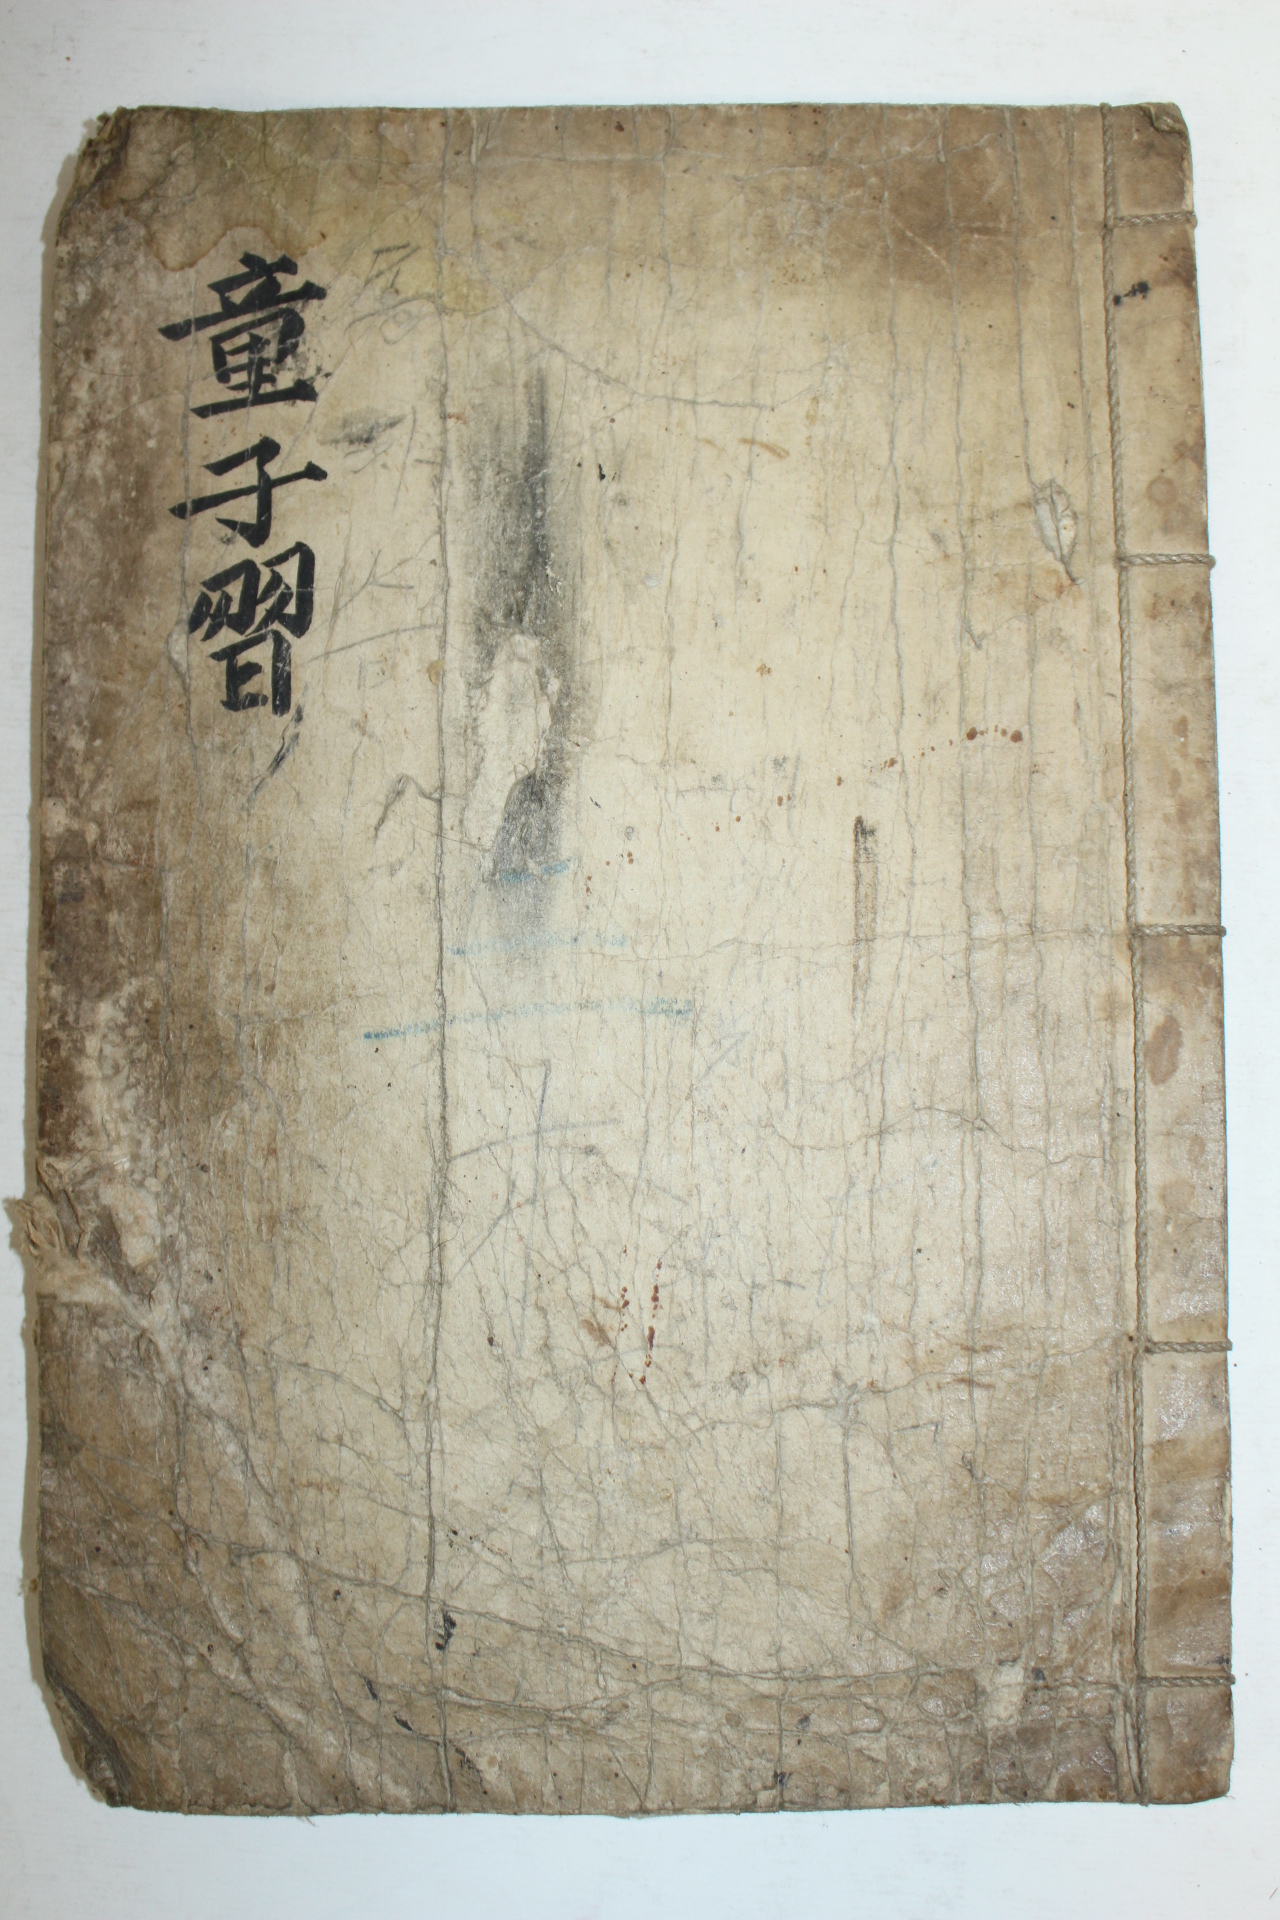 童子習